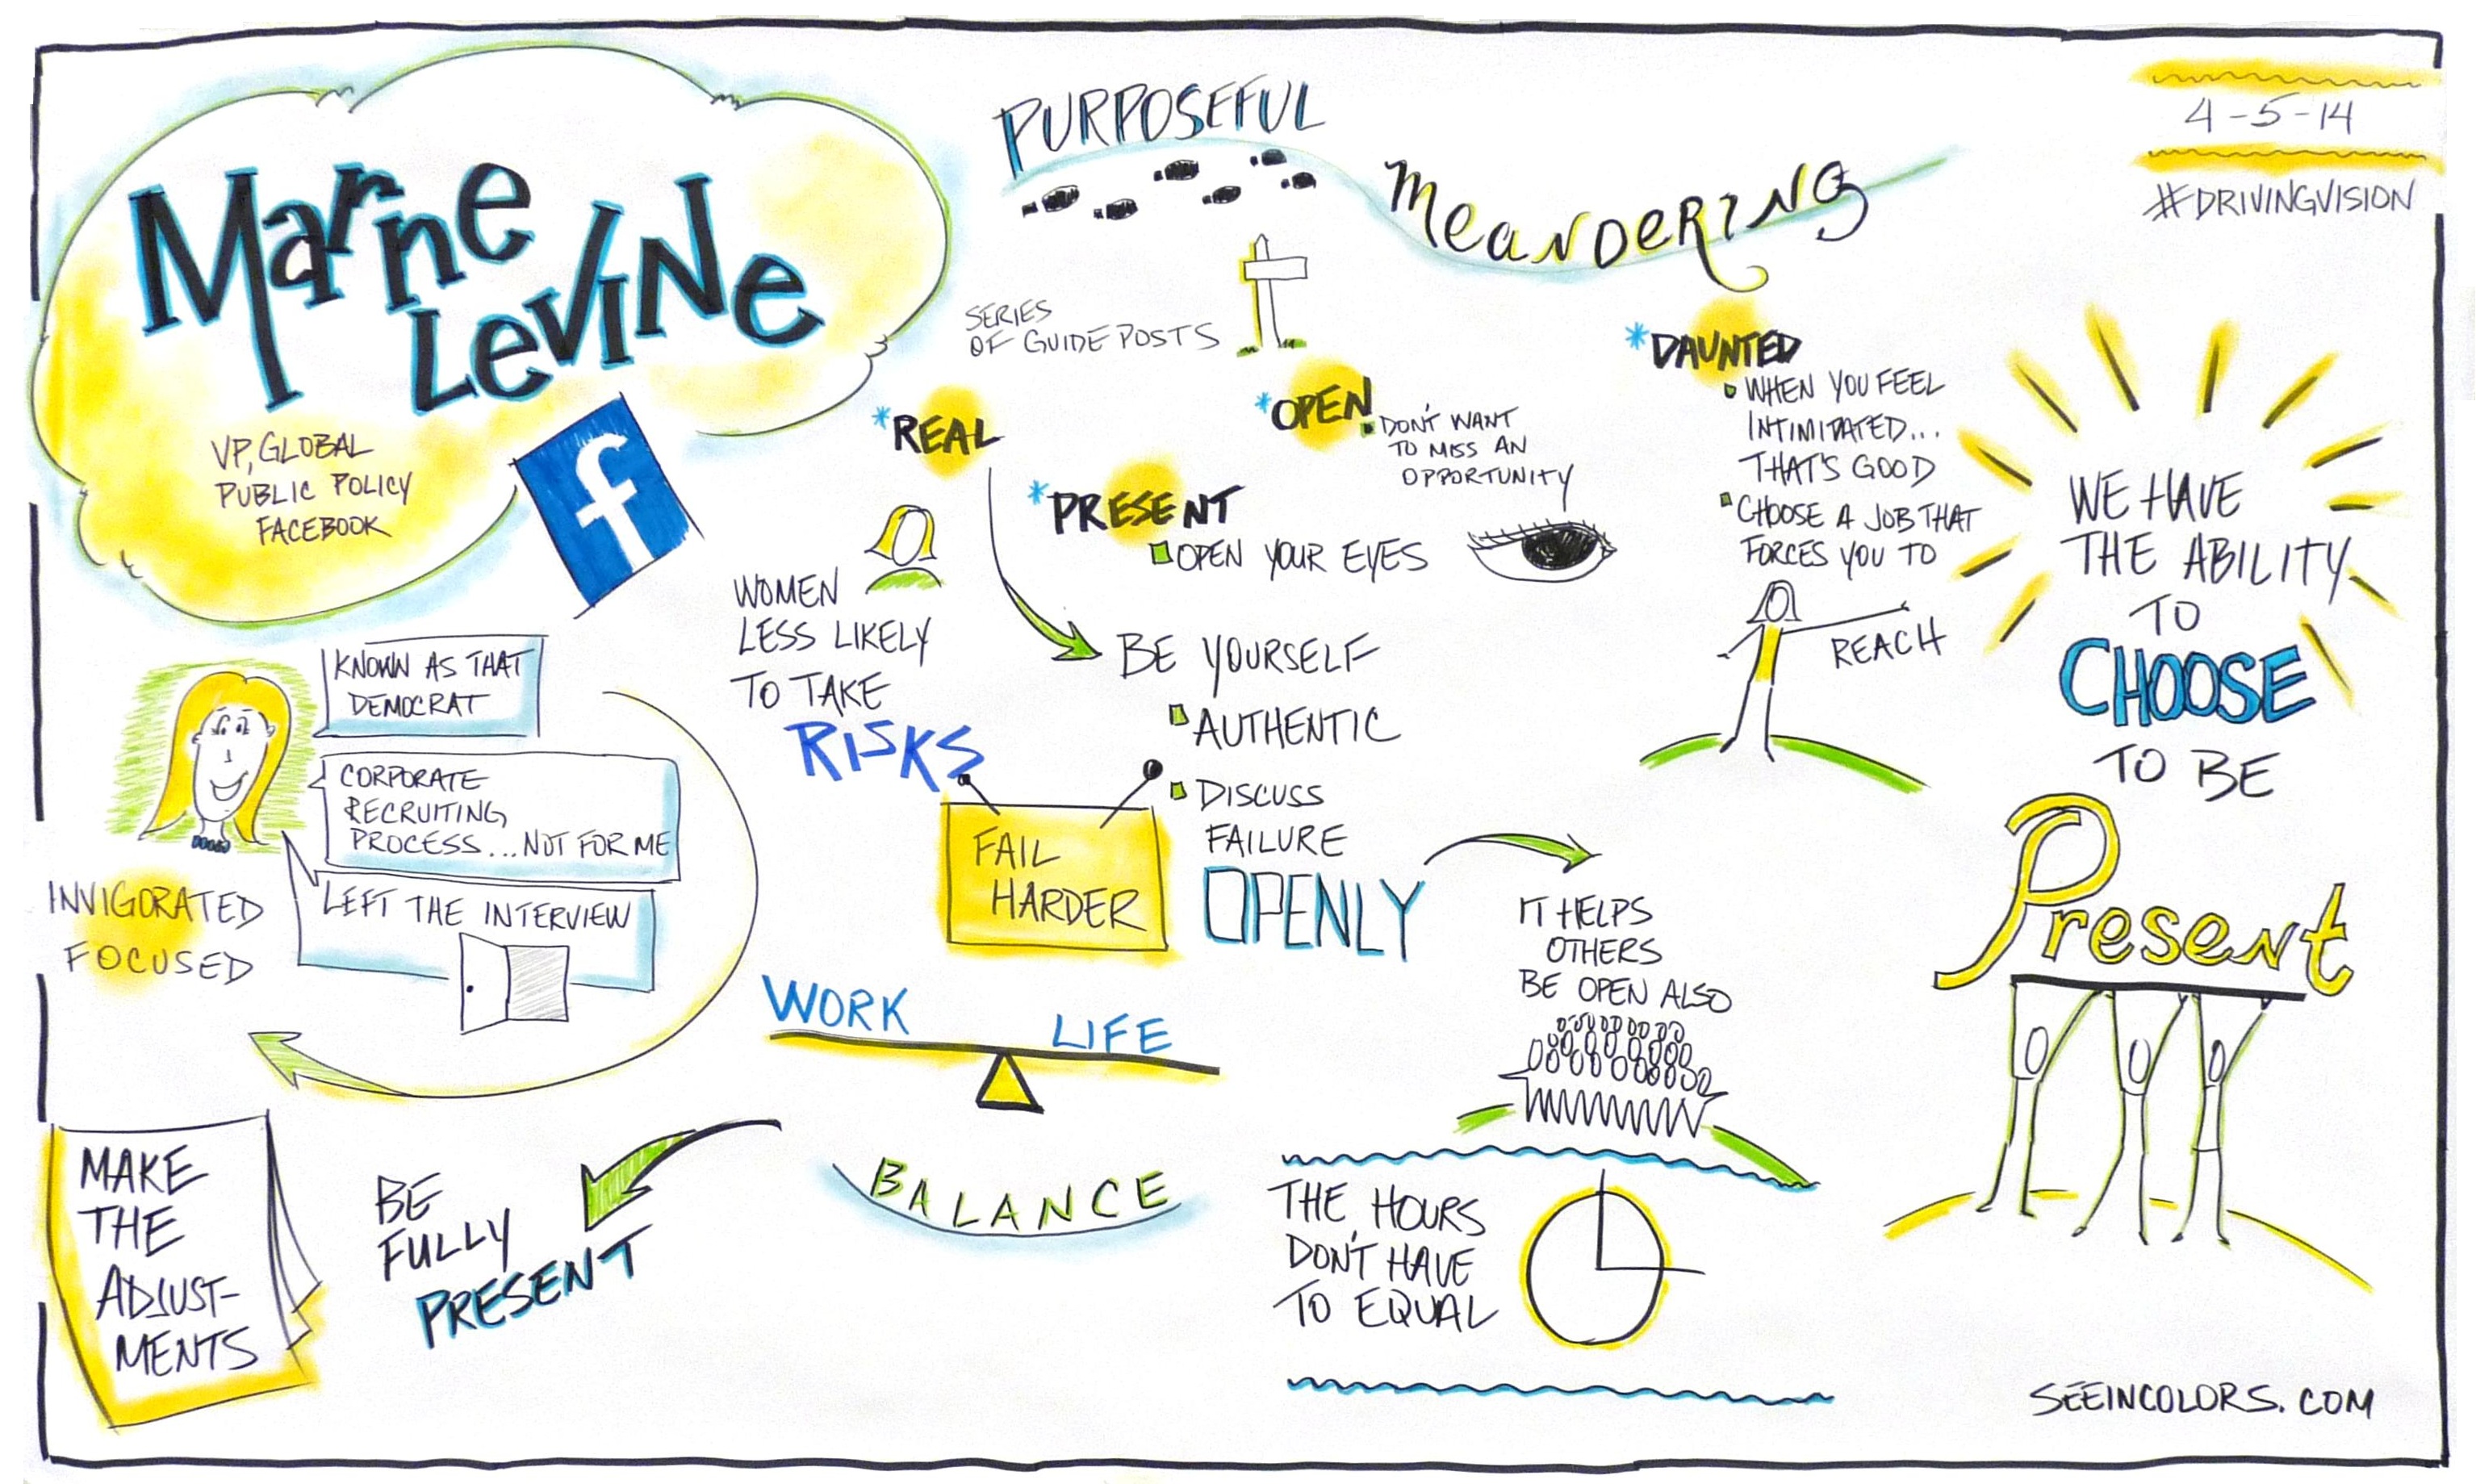 Marne
Levine
VP, GLOBAL
PUBLIC POLICY
FACEBOOK
f
PURPOSEFUL
MEANDERING
4-5-14
#DRIVINGVISION
SERIES
OF GUIDE POSTS
*REAL
*PRESENT
OPEN YOUR EYES
*OPEN
DON'T WANT
TO MISS AN
OPPORTUNITY
*DAUNTED
WHEN YOU FEEL
INTIMIDATED...
THAT'S GOOD
CHOOSE A JOB THAT
FORCES YOU TO
REACH
WE HAVE
THE ABILITY
TO
CHOOSE
TO BE
Present
KNOWN AS THAT
DEMOCRAT
CORPORATE
RECRUITING
PROCESS... NOT FOR ME
LEFT THE INTERVIEW
INVIGORATED
FOCUSED
WOMEN
LESS LIKELY
TO TAKE
RISKS
BE YOURSELF
AUTHENTIC
DISCUSS
FAILURE
OPENLY
FAIL
HARDER
IT HELPS
OTHERS
BE OPEN ALSO
WORK
LIFE
BALANCE
BE
FULLY
PRESENT
MAKE
THE
ADJUST-
MENTS
THE HOURS
DON'T HAVE
TO EQUAL
SEEINCOLORS.COM